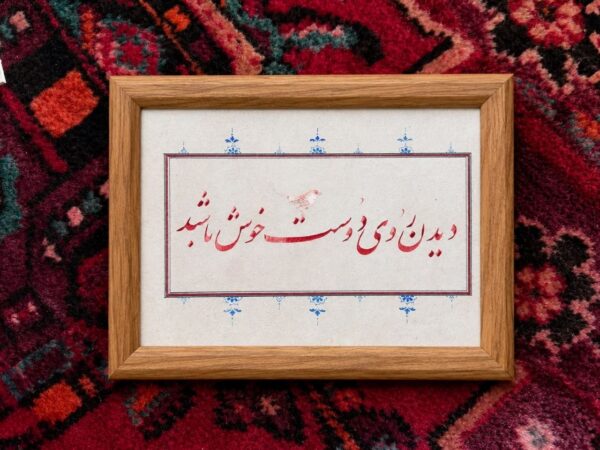 دیدن روی دوست خوش باشد